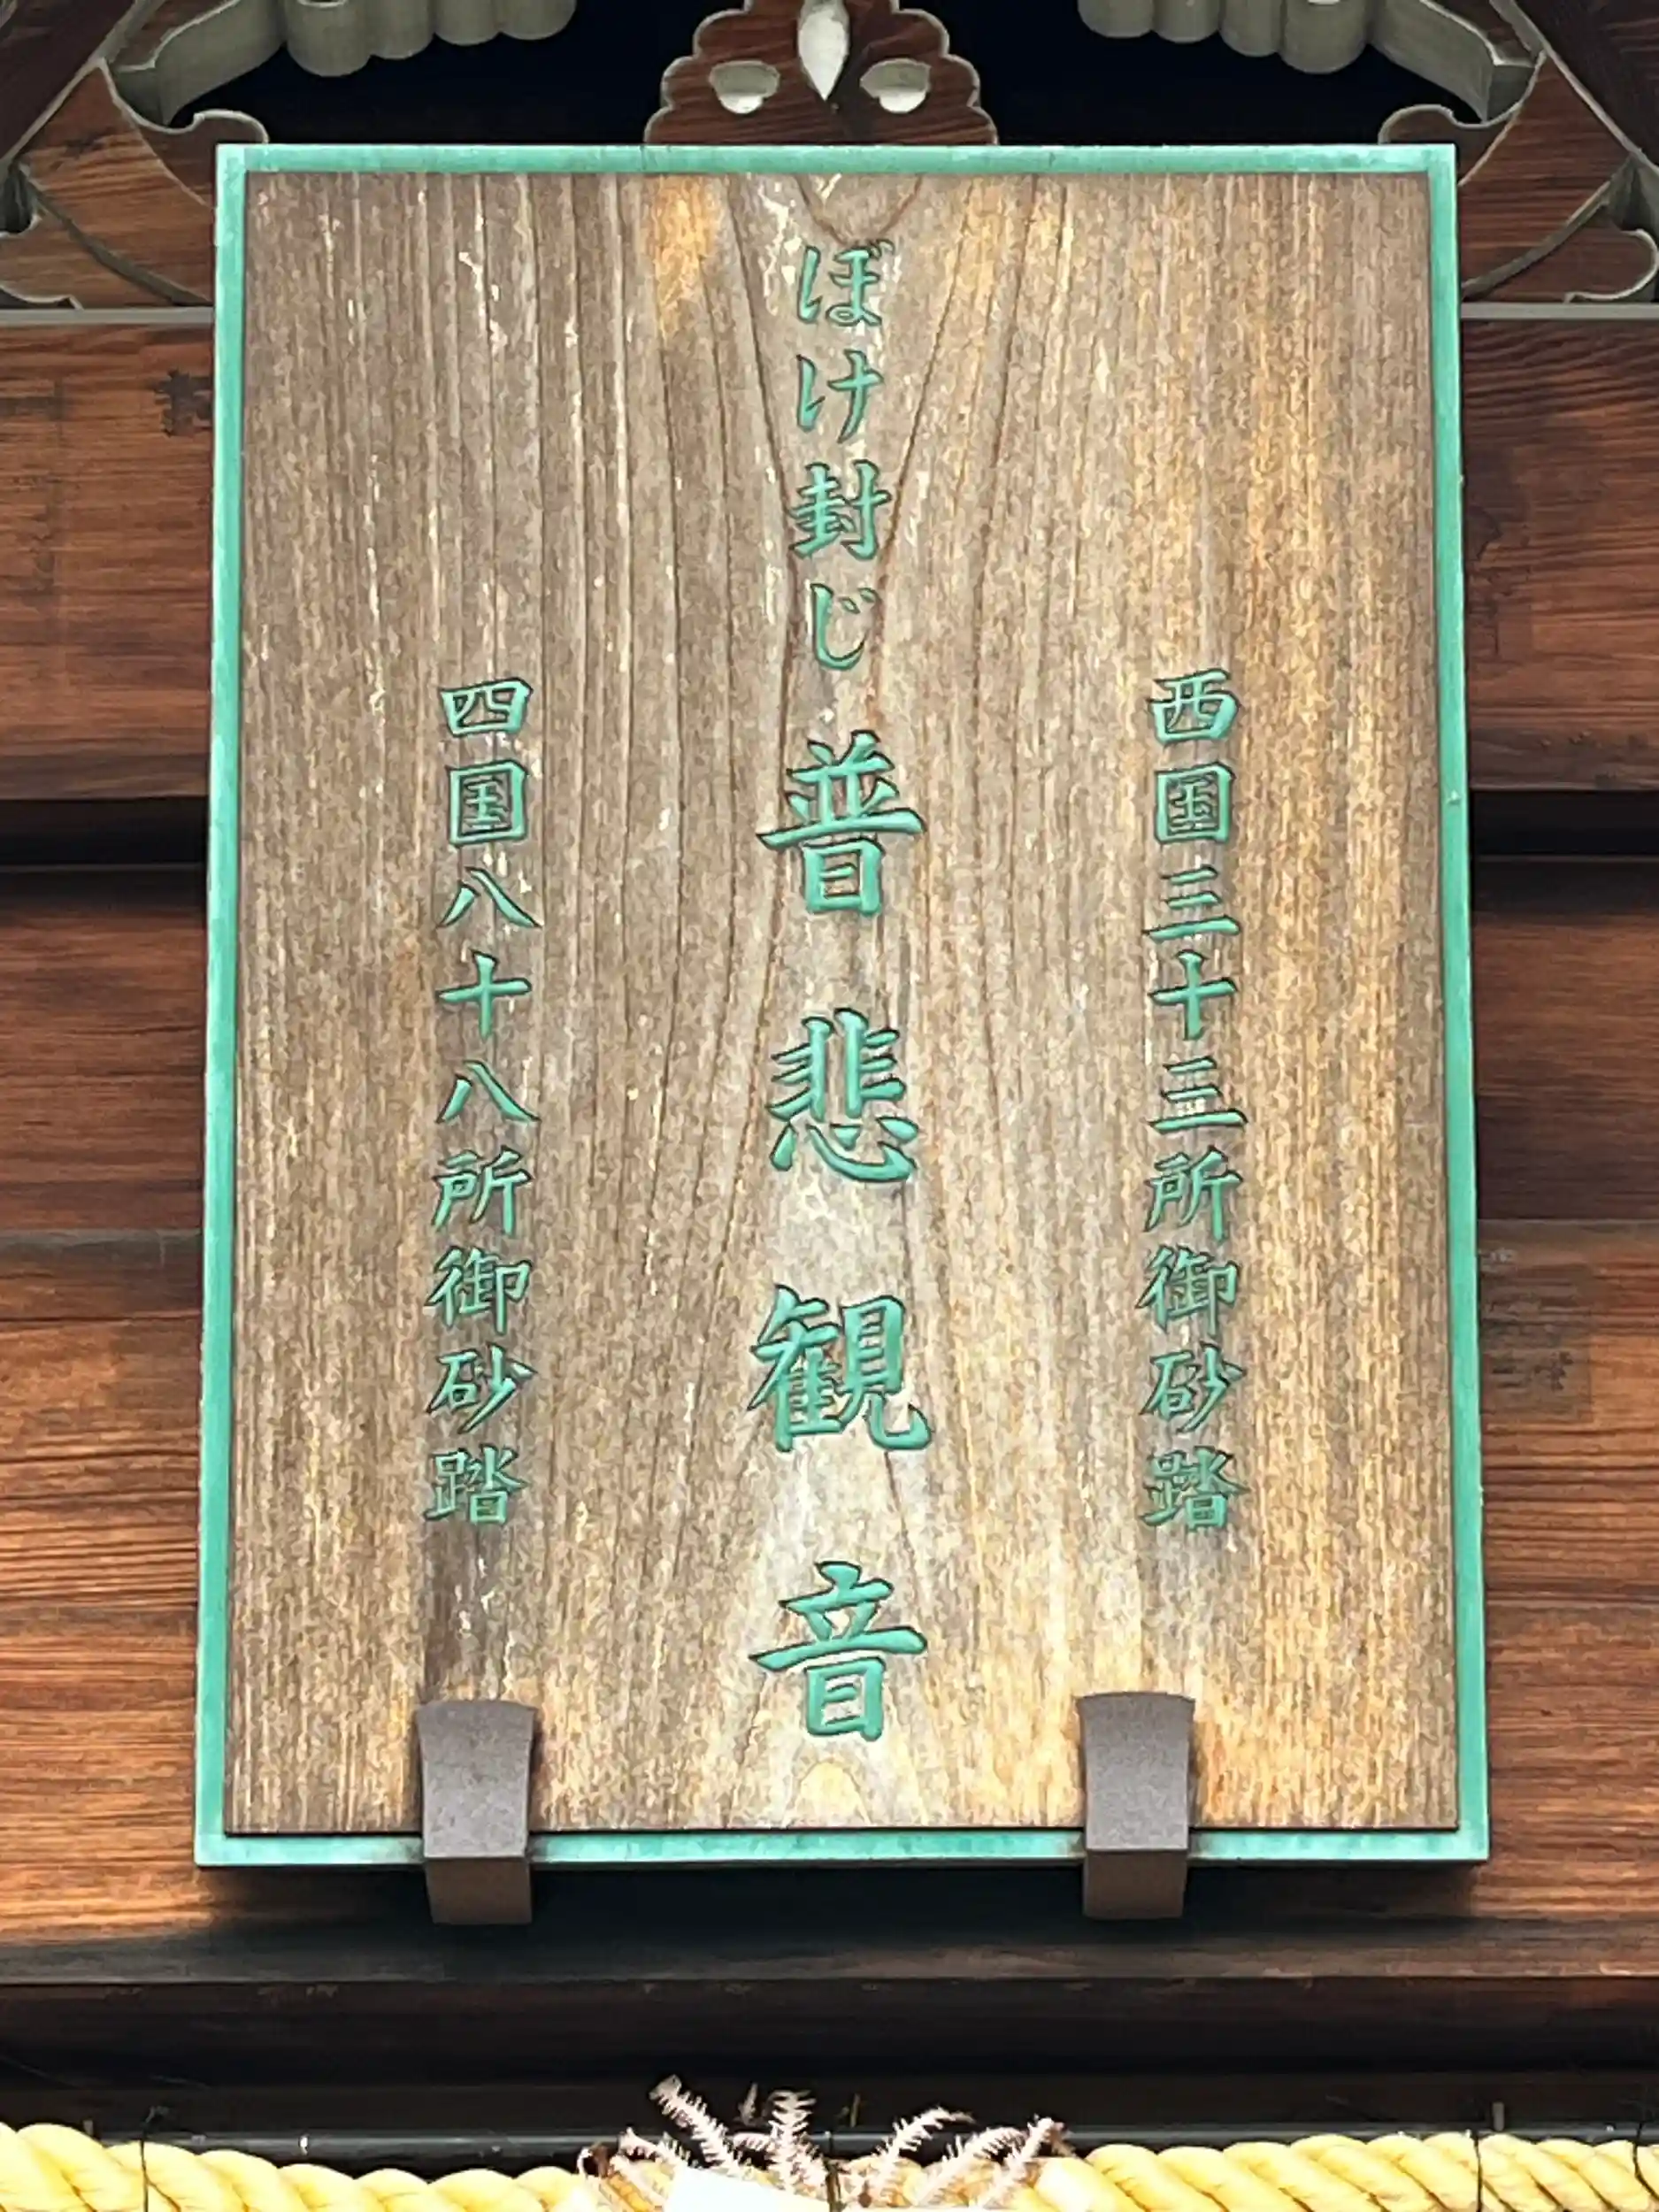 西国三十三所御砂踏
ぼけ封じ普悲観音
四国八十八所御砂踏